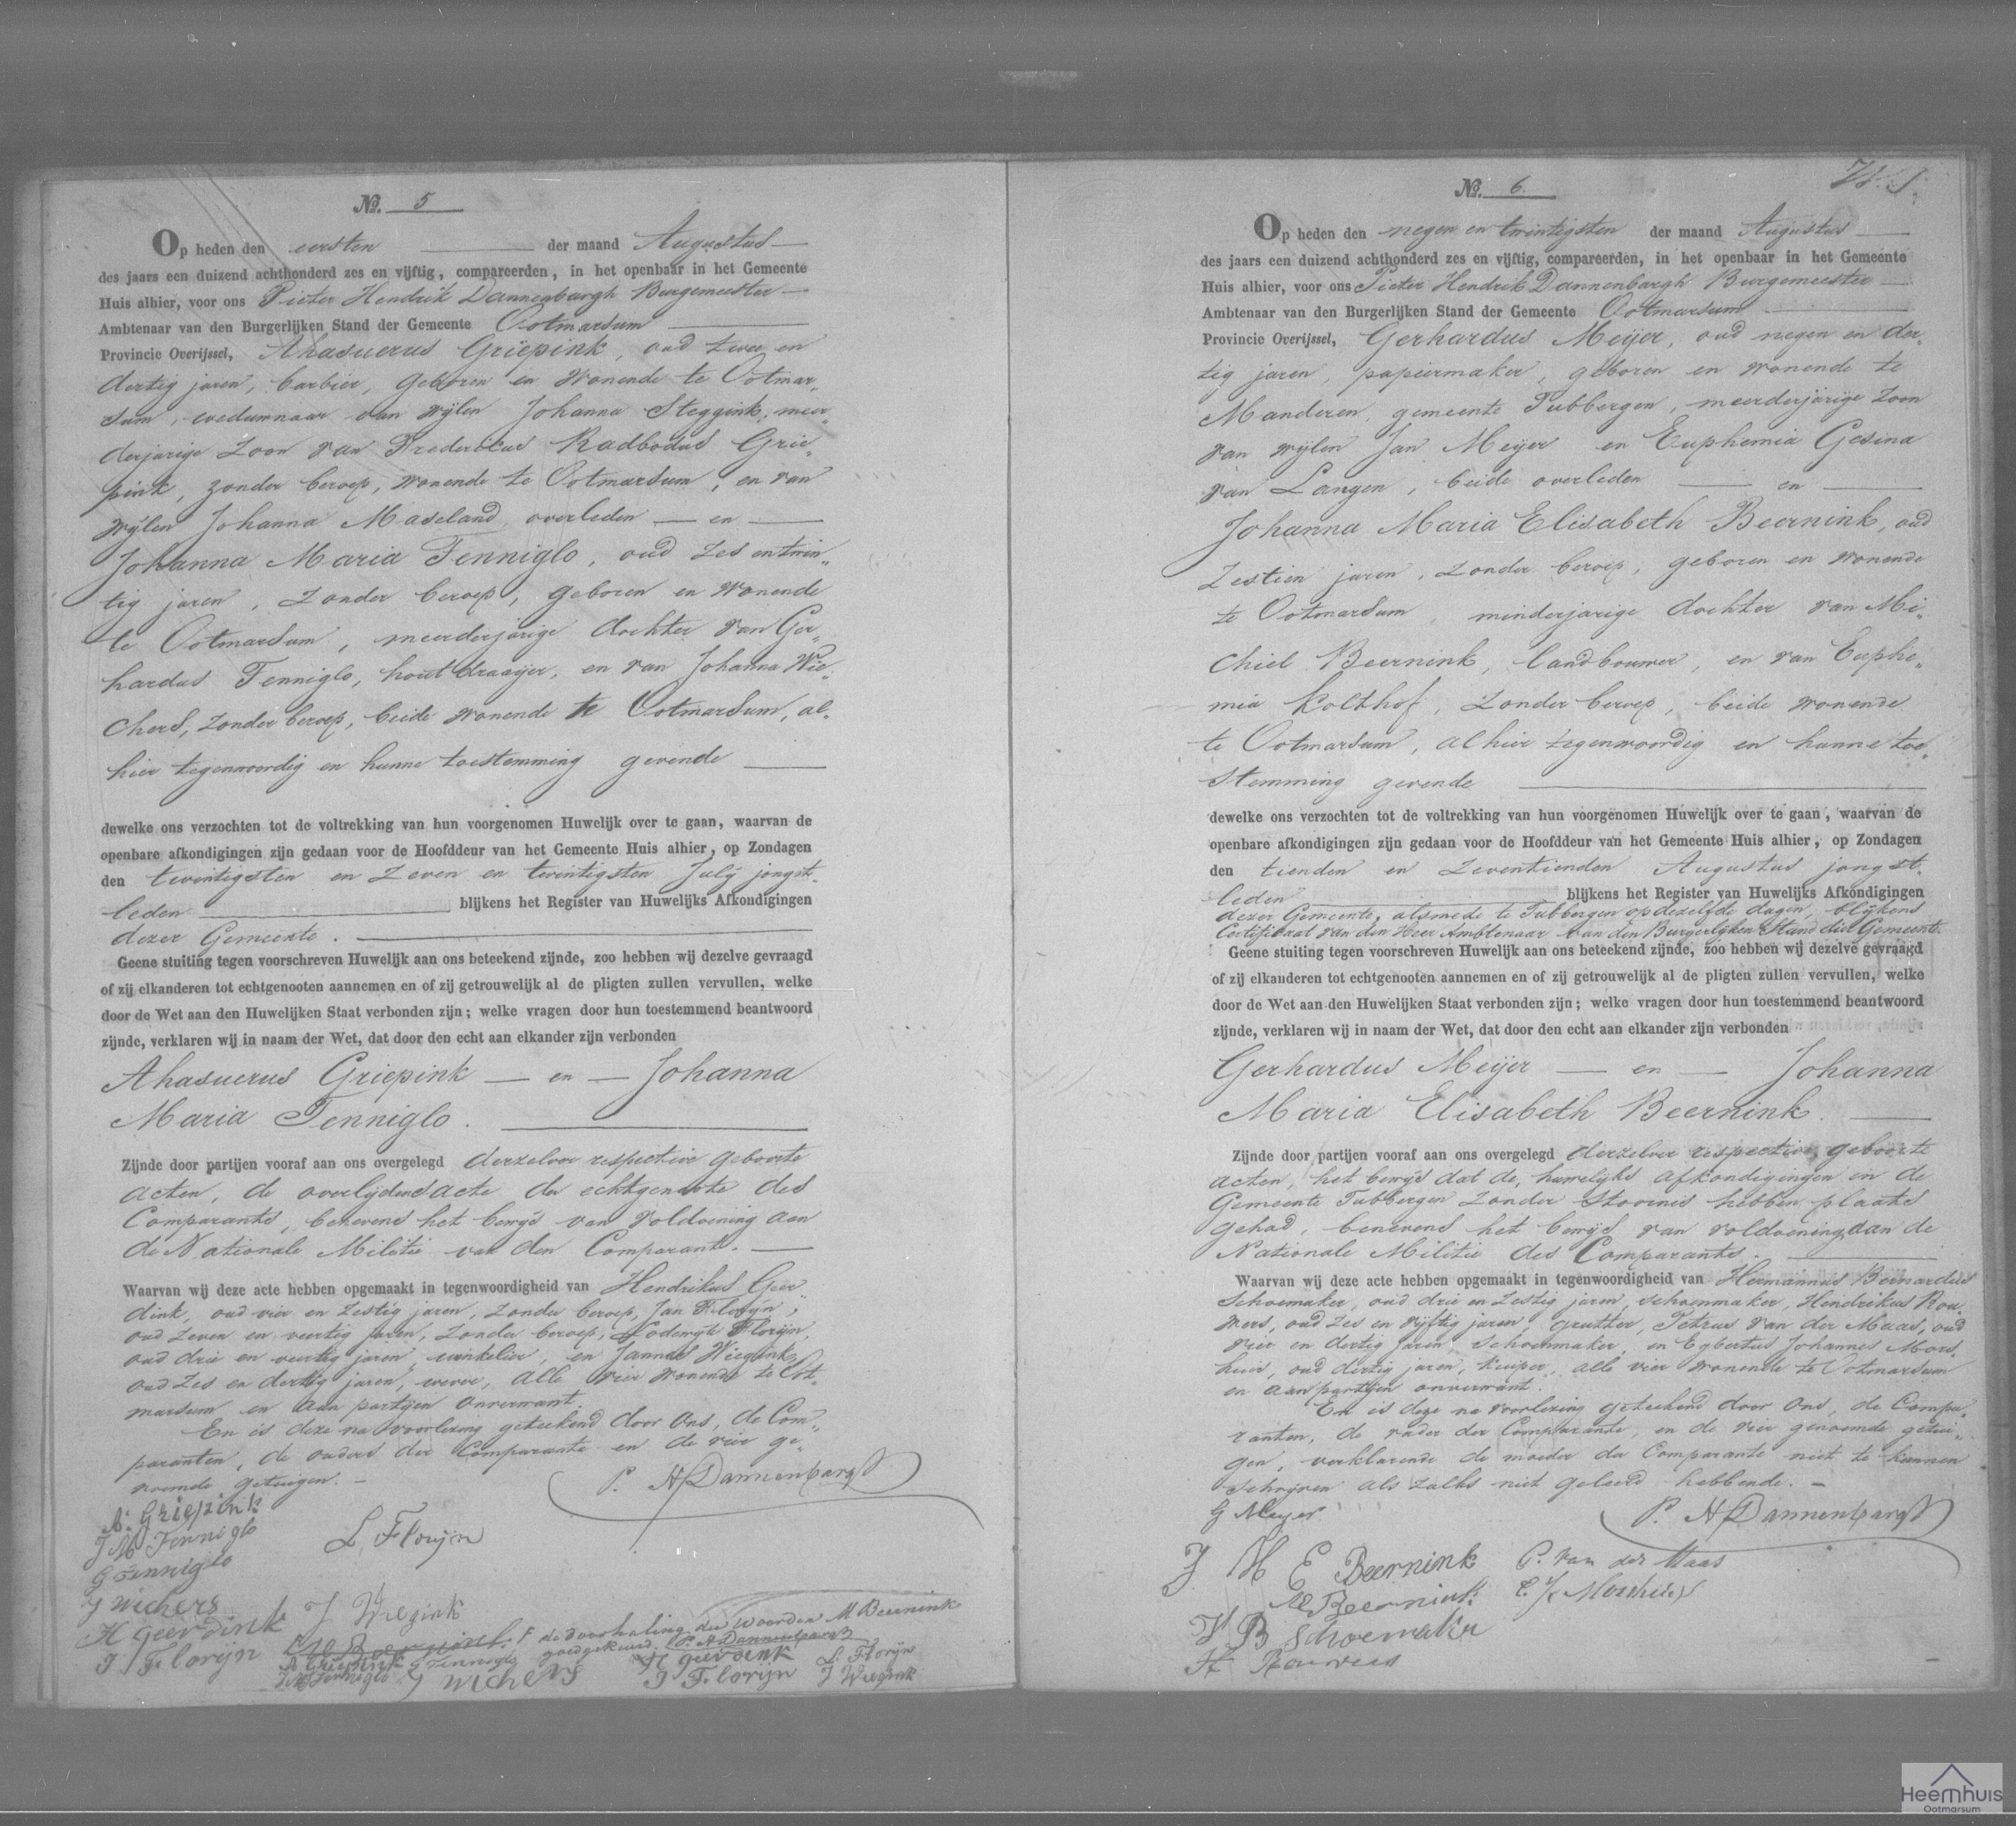 No. 5
Op heden den eersten der maand Augustus
des jaars een duizend achthonderd zes en vijftig, compareerden, in het openbaar in het Gemeente
Huis alhier, voor ons Pieter Hendrik Dannenbargh Burgemeester
Ambtenaar van den Burgerlijken Stand der Gemeente Ootmarsum
Provincie Overijssel, Ahasuerus Griepink, oud twee en
dertig jaren, barbier, geboren en wonende te Ootmar„
sum, weduwnaar van wijlen Johanna Steggink, meer„
derjarige zoon van Fredericus Radbodus Grie„
pink, zonder beroep, wonende te Ootmarsum, en van
wijlen Johanna Maseland overleden — en —
Johanna Maria Tenniglo, oud zes en twin„
tig jaren, zonder beroep, geboren en wonende
te Ootmarsum, meerderjarige dochter van Ger„
hardus Tenniglo, hout draaijer, en van Johanna Wie„
chers, zonder beroep, beide wonende te Ootmarsum, al„
hier tegenwoordig en hunne toestemming gevende
dewelke ons verzochten tot de voltrekking van hun voorgenomen Huwelijk over te gaan, waarvan de
openbare afkondigingen zijn gedaan voor de Hoofddeur van het Gemeente Huis alhier, op Zondagen
den twintigsten en zeven en twintigsten July jongst„
leden blijkens het Register van Huwelijks Afkondigingen
dezer Gemeente.
Geene stuiting tegen voorschreven Huwelijk aan ons beteekend zijnde, zoo hebben wij dezelve gevraagd
of zij elkanderen tot echtgenooten aannemen en of zij getrouwelijk al de pligten zullen vervullen, welke
door de Wet aan den Huwelijken Staat verbonden zijn; welke vragen door hun toestemmend beantwoord
zijnde, verklaren wij in naam der Wet, dat door den echt aan elkander zijn verbonden
Ahasuerus Griepink — en — Johanna
Maria Tenniglo.
Zijnde door partijen vooraf aan ons overgelegd derzelver respective geboorte
acten, de overlijdensacte der echtgenoote des
Comparants, benevens het bewijs van voldoening aan
de Nationale Militie van den Comparant.
Waarvan wij deze acte hebben opgemaakt in tegenwoordigheid van Hendrikus Geer„
dink, oud vier en zestig jaren, zonder beroep, Jan Florijn,
oud zeven en veertig jaren, zonder beroep, Lodewijk Florijn,
oud drie en veertig jaren, winkelier, en Jannes Wiegink,
oud zes en dertig jaren, wever, alle vier wonende te Oot„
marsum en aan partijen onvermant.
En is deze na voorlezing geteekend door ons, de Com„
paranten, de ouders der Comparante en de vier ge„
noemde getuigen.
P. H Dannenbargh
A: Griepink
J M Tenniglo
G Tenniglo
L. Florijn
J Wichers
H Geerdink
J Wiegink
J Florijn
de doorhaling der woorden M Beernink
goedgekeurd. P. H Dannenbargh
A Griepink G Tenniglo H Geerdink L. Florijn
J M Tenniglo J Wichers J Florijn J Wiegink
No. 6.
Op heden den negen en twintigsten der maand Augustus
des jaars een duizend achthonderd zes en vijftig, compareerden, in het openbaar in het Gemeente
Huis alhier, voor ons Pieter Hendrik Dannenbargh Burgemeester
Ambtenaar van den Burgerlijken Stand der Gemeente Ootmarsum
Provincie Overijssel, Gerhardus Meijer, oud negen en der„
tig jaren, papiermaker, geboren en wonende te
Manderen, gemeente Tubbergen, meerderjarige zoon
van wijlen Jan Meijer en Euphemia Gesina
van Langen, beide overleden — en —
Johanna Maria Elisabeth Beernink, oud
zestien jaren, zonder beroep, geboren en wonende
te Ootmarsum, minderjarige dochter van Mi„
chiel Beernink, landbouwer, en van Euphe„
mia Kolthof, zonder beroep, beide wonende
te Ootmarsum, alhier tegenwoordig en hunne toe„
stemming gevende
dewelke ons verzochten tot de voltrekking van hun voorgenomen Huwelijk over te gaan, waarvan de
openbare afkondigingen zijn gedaan voor de Hoofddeur van het Gemeente Huis alhier, op Zondagen
den tienden en zeventienden Augustus jongst„
leden blijkens het Register van Huwelijks Afkondigingen
dezer Gemeente, alsmede te Tubbergen op dezelfde dagen, blijkens
Certificaat van den Heer Ambtenaar van den Burgerlijken Stand dier Gemeente.
Geene stuiting tegen voorschreven Huwelijk aan ons beteekend zijnde, zoo hebben wij dezelve gevraagd
of zij elkanderen tot echtgenooten aannemen en of zij getrouwelijk al de pligten zullen vervullen, welke
door de Wet aan den Huwelijken Staat verbonden zijn; welke vragen door hun toestemmend beantwoord
zijnde, verklaren wij in naam der Wet, dat door den echt aan elkander zijn verbonden
Gerhardus Meijer — en — Johanna
Maria Elisabeth Beernink.
Zijnde door partijen vooraf aan ons overgelegd derzelver respective geboorte
acten, het bewijs dat de huwelijks afkondigingen in de
Gemeente Tubbergen zonder stoornis hebben plaats
gehad, benevens het bewijs van voldoening aan de
Nationale Militie des Comparants.
Waarvan wij deze acte hebben opgemaakt in tegenwoordigheid van Hermannus Bernardus
Schoemaker, oud drie en zestig jaren, schoenmaker, Hindrikus Rou„
wers, oud zes en vijftig jaren, grutter, Petrus van der Maas, oud
vier en dertig jaren, schoenmaker, en Egbertus Johannes Mors„
heis, oud dertig jaren, kuiper, alle vier wonende te Ootmarsum
en aan partijen onvermant.
En is deze na voorlezing geteekend door ons, de Compa„
ranten, de vader der Comparante, en de vier genoemde getui„
gen, verklarende de moeder der Comparante niet te kunnen
schrijven als zulks niet geleerd hebbende.
G Meyer
P. H Dannenbargh
J M E Beernink P. van der Maas
M Beernink
H B Schoemaker
H Rouwers
Heemhuis
Ootmarsum